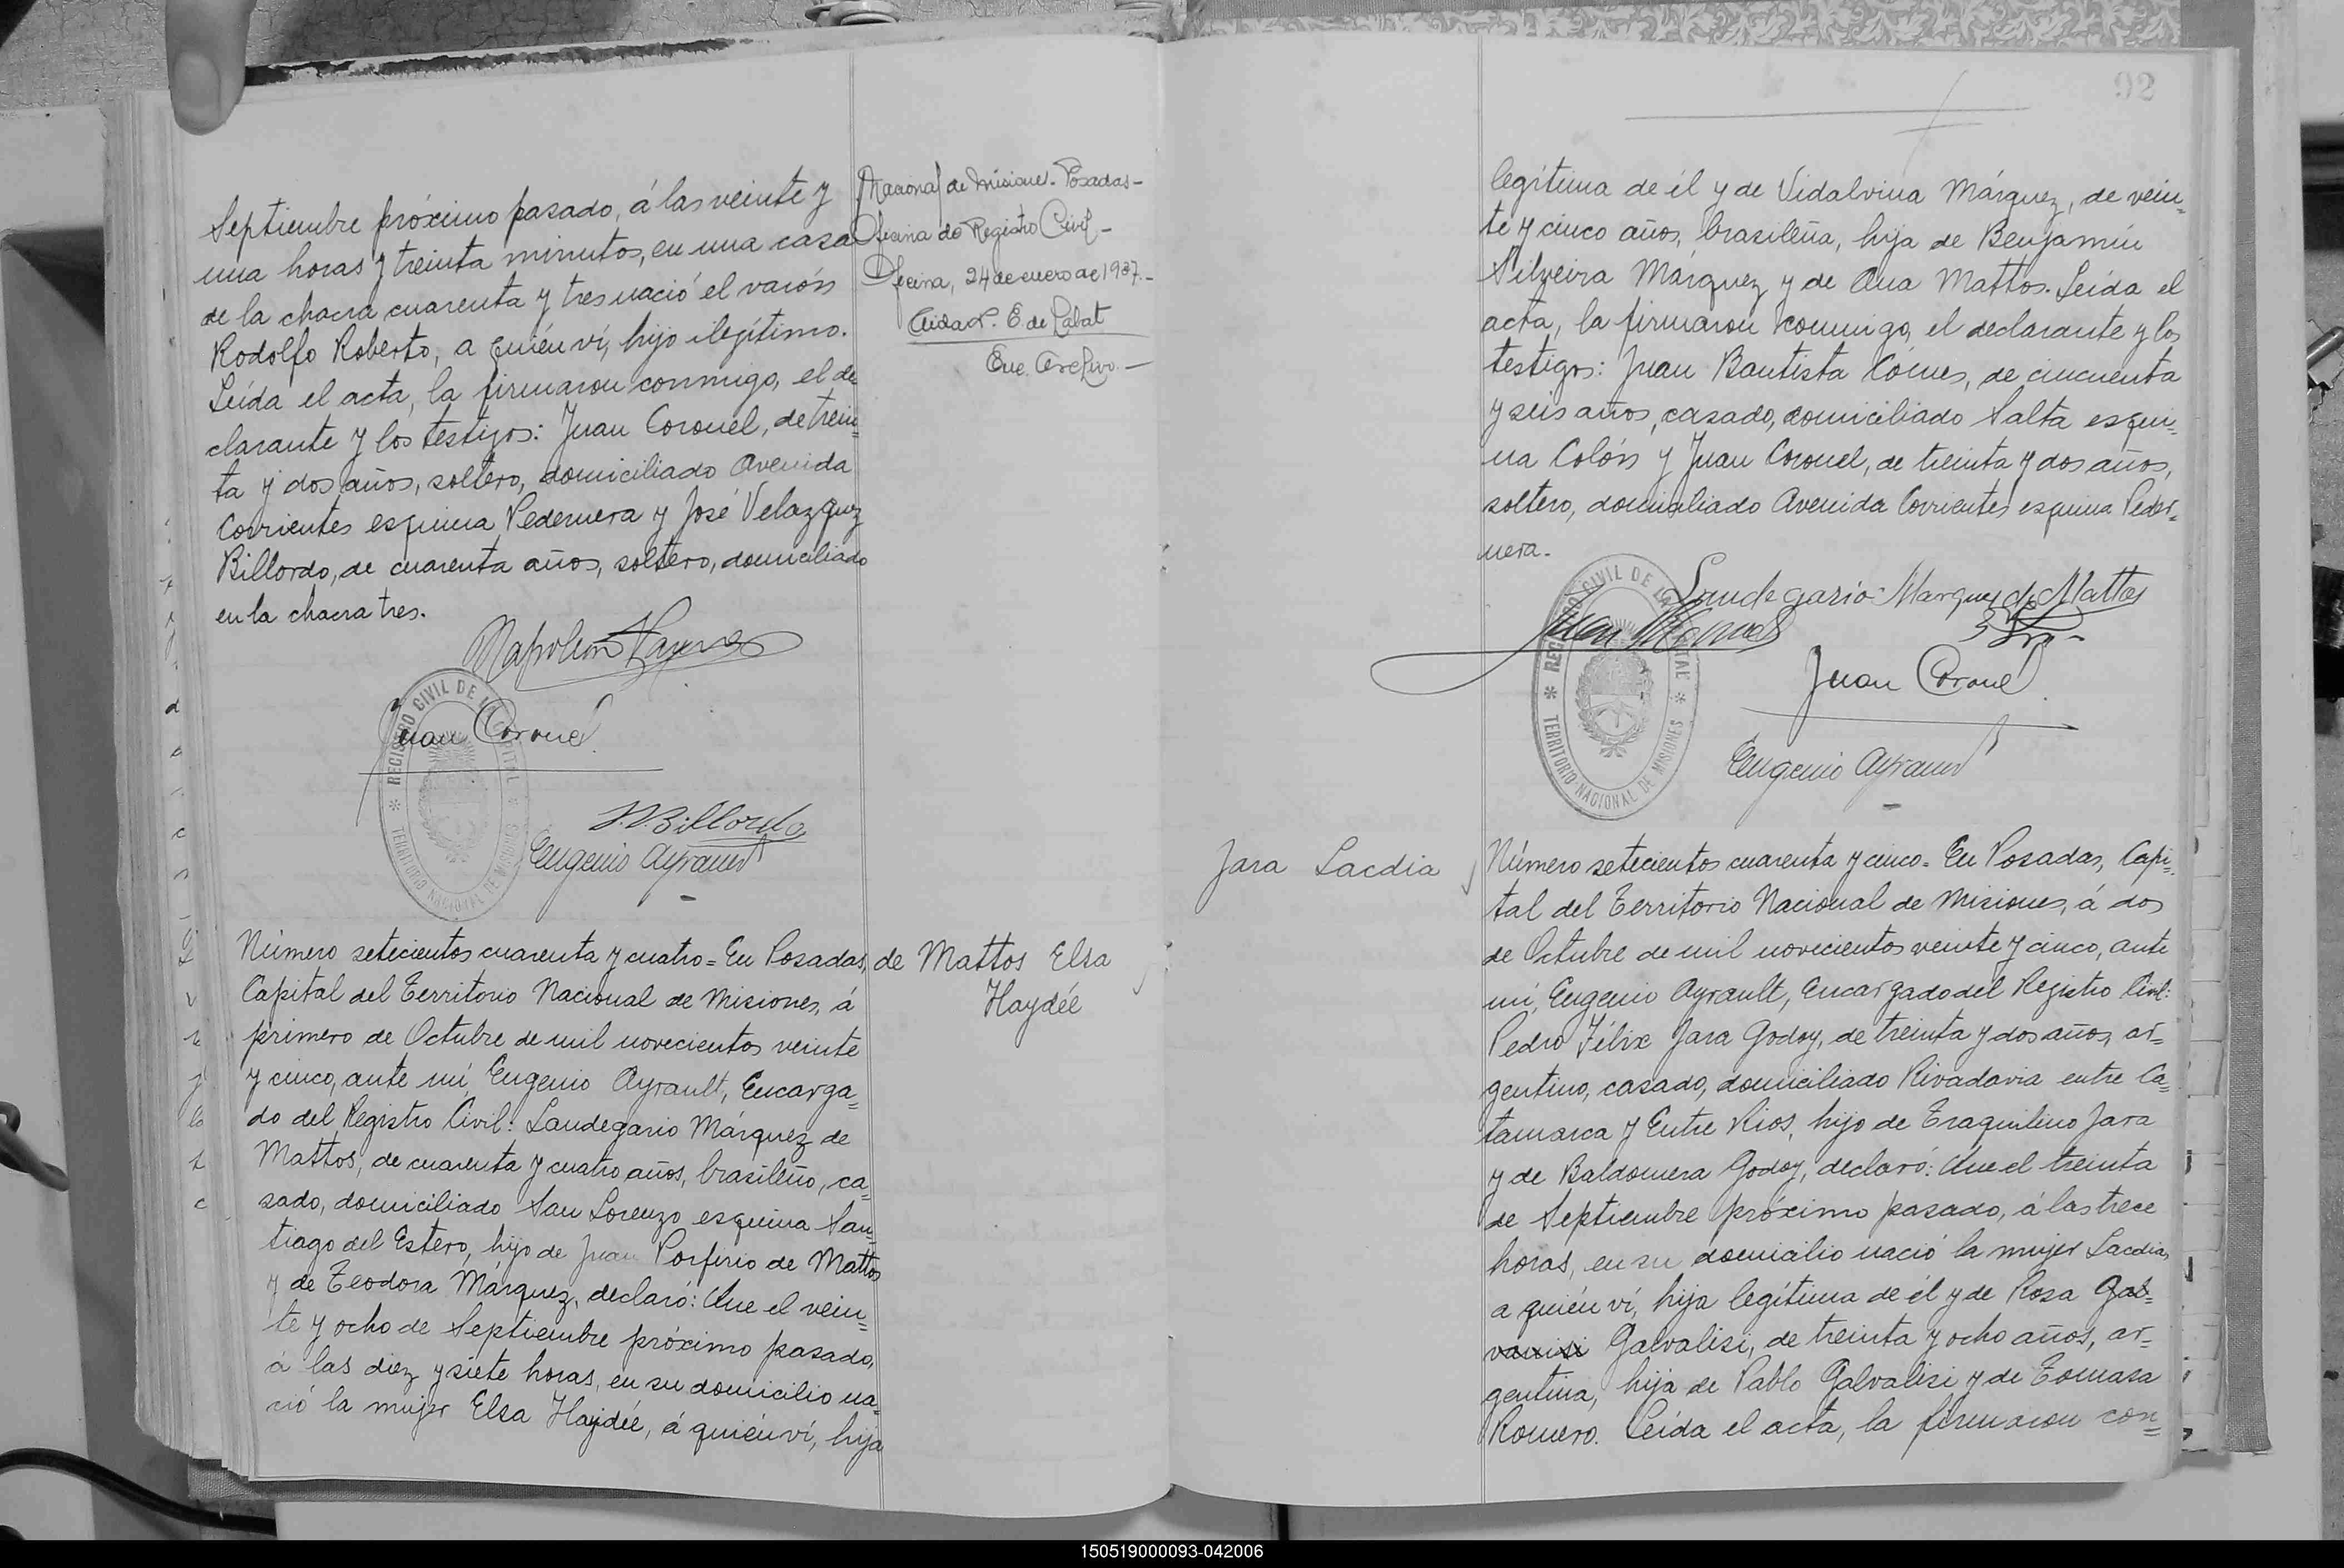 Septiembre próximo pasado, á las veinte y
una horas y treinta minutos, en una casa
de la chacra cuarenta y tres nació el varón
Rodolfo Roberto, a quién ví, hijo ilegítimo.
Leída el acta, la firmaron conmigo, el de
clarante y los testigos: Juan Coronel, de trein=
ta y dos años, soltero, domiciliado Avenida
Corrientes esquina Pedernera y José Velazquez
Billordo, de cuarenta años, soltero, domiciliado
en la chacra tres.
Napoleón
Juan Coronel
J. V. Billordo
Eugenio Ayrault
REGISTRO CIVIL DE LA CAPITAL
* TERRITORIO NACIONAL DE MISIONES *
Nacional de Misiones. Posadas-
Oficina de Registro Civil-
Oficina, 24 de enero de 1937.-
Aida P. E. de Labat
Enc. Archivo.-
Número setecientos cuarenta y cuatro = En Posadas,
Capital del Territorio Nacional de Misiones, á
primero de Octubre de mil novecientos veinte
y cinco, ante mí, Eugenio Ayrault, Encarga=
do del Registro Civil: Laudegario Márquez de
Mattos, de cuarenta y cuatro años, brasileño, ca=
sado, domiciliado San Lorenzo esquina San=
tiago del Estero, hijo de Juan Porfirio de Mattos
y de Teodora Márquez, declaró: Que el vein=
te y ocho de Septiembre próximo pasado,
á las diez y siete horas, en su domicilio na=
ció la mujer Elsa Haydée, á quién ví, hija
de Mattos Elsa
Haydée
92
legítima de él y de Vidalvina Márquez, de vein=
te y cinco años, brasileña, hija de Benjamín
Silveira Márquez y de Ana Mattos. Leída el
acta, la firmaron conmigo, el declarante y los
testigos: Juan Bautista Cómes, de cincuenta
y seis años, casado, domiciliado Salta esqui=
na Colón y Juan Coronel, de treinta y dos años,
soltero, domiciliado Avenida Corrientes esquina Peder=
nera.
Laudegario Marques de Mattos
Juan
Juan Coronel
Eugenio Ayrault
REGISTRO CIVIL DE LA CAPITAL
* TERRITORIO NACIONAL DE MISIONES *
Jara Lacdia
Número setecientos cuarenta y cinco = En Posadas, Capi=
tal del Territorio Nacional de Misiones, á dos
de Octubre de mil novecientos veinte y cinco, ante
mí, Eugenio Ayrault, Encargado del Registro Civil:
Pedro Félix Jara Godoy, de treinta y dos años, ar=
gentino, casado, domiciliado Rivadavia entre Ca=
tamarca y Entre Rios, hijo de Traquilino Jara
y de Baldomera Godoy, declaró: Que el treinta
de Septiembre próximo pasado, á las trece
horas, en su domicilio nació la mujer Lacdia,
a quién ví, hija legítima de él y de Rosa Gal=
vanisi Galvalisi, de treinta y ocho años, ar=
gentina, hija de Pablo Galvalisi y de Tomasa
Romero. Leída el acta, la firmaron con=
150519000093-042006